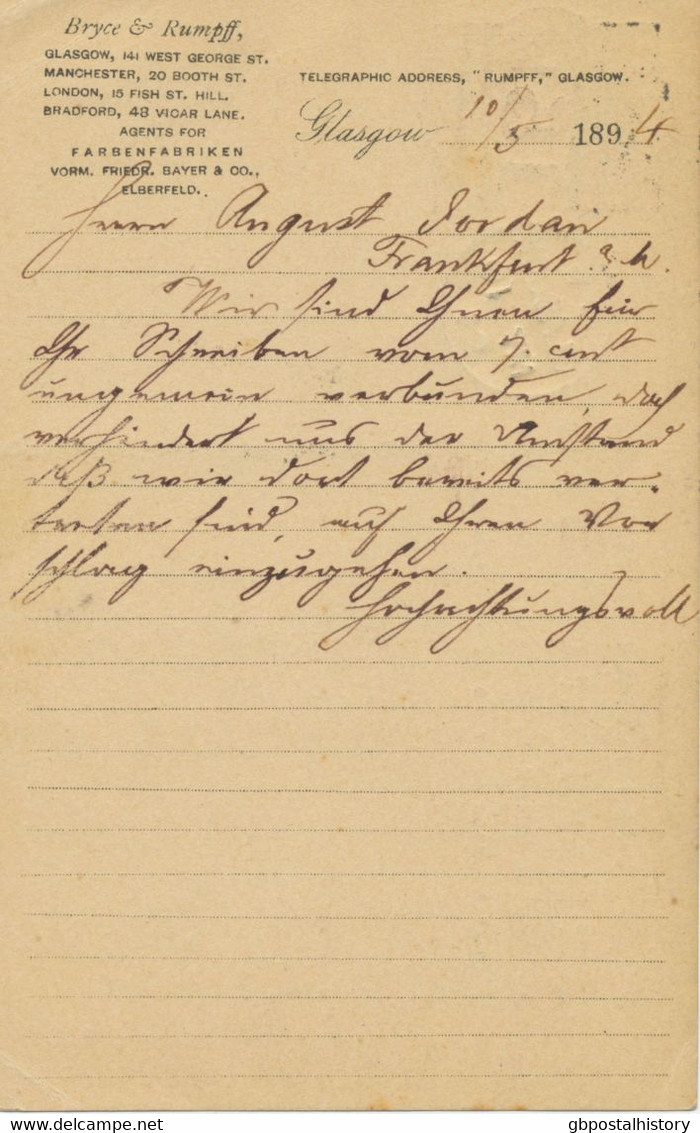 Bryce & Rumpff,
GLASGOW, 141 WEST GEORGE ST.
MANCHESTER, 20 BOOTH ST.
LONDON, 15 FISH ST. HILL.
BRADFORD, 48 VICAR LANE.
AGENTS FOR
FARBENFABRIKEN
VORM. FRIEDR. BAYER & CO.,
ELBERFELD.
TELEGRAPHIC ADDRESS, "RUMPFF," GLASGOW.
Glasgow 10/5 1894
Herrn August Jordan
Frankfurt a. M.
Wir sind Ihnen für
Ihr Schreiben vom 7. crt
ungemein verbunden, doch
verhindert uns der Umstand
daß wir dort bereits ver-
treten sind, auf Ihren Vor
schlag einzugehen.
Hochachtungsvoll
© delcampe.net
gbpostalhistory